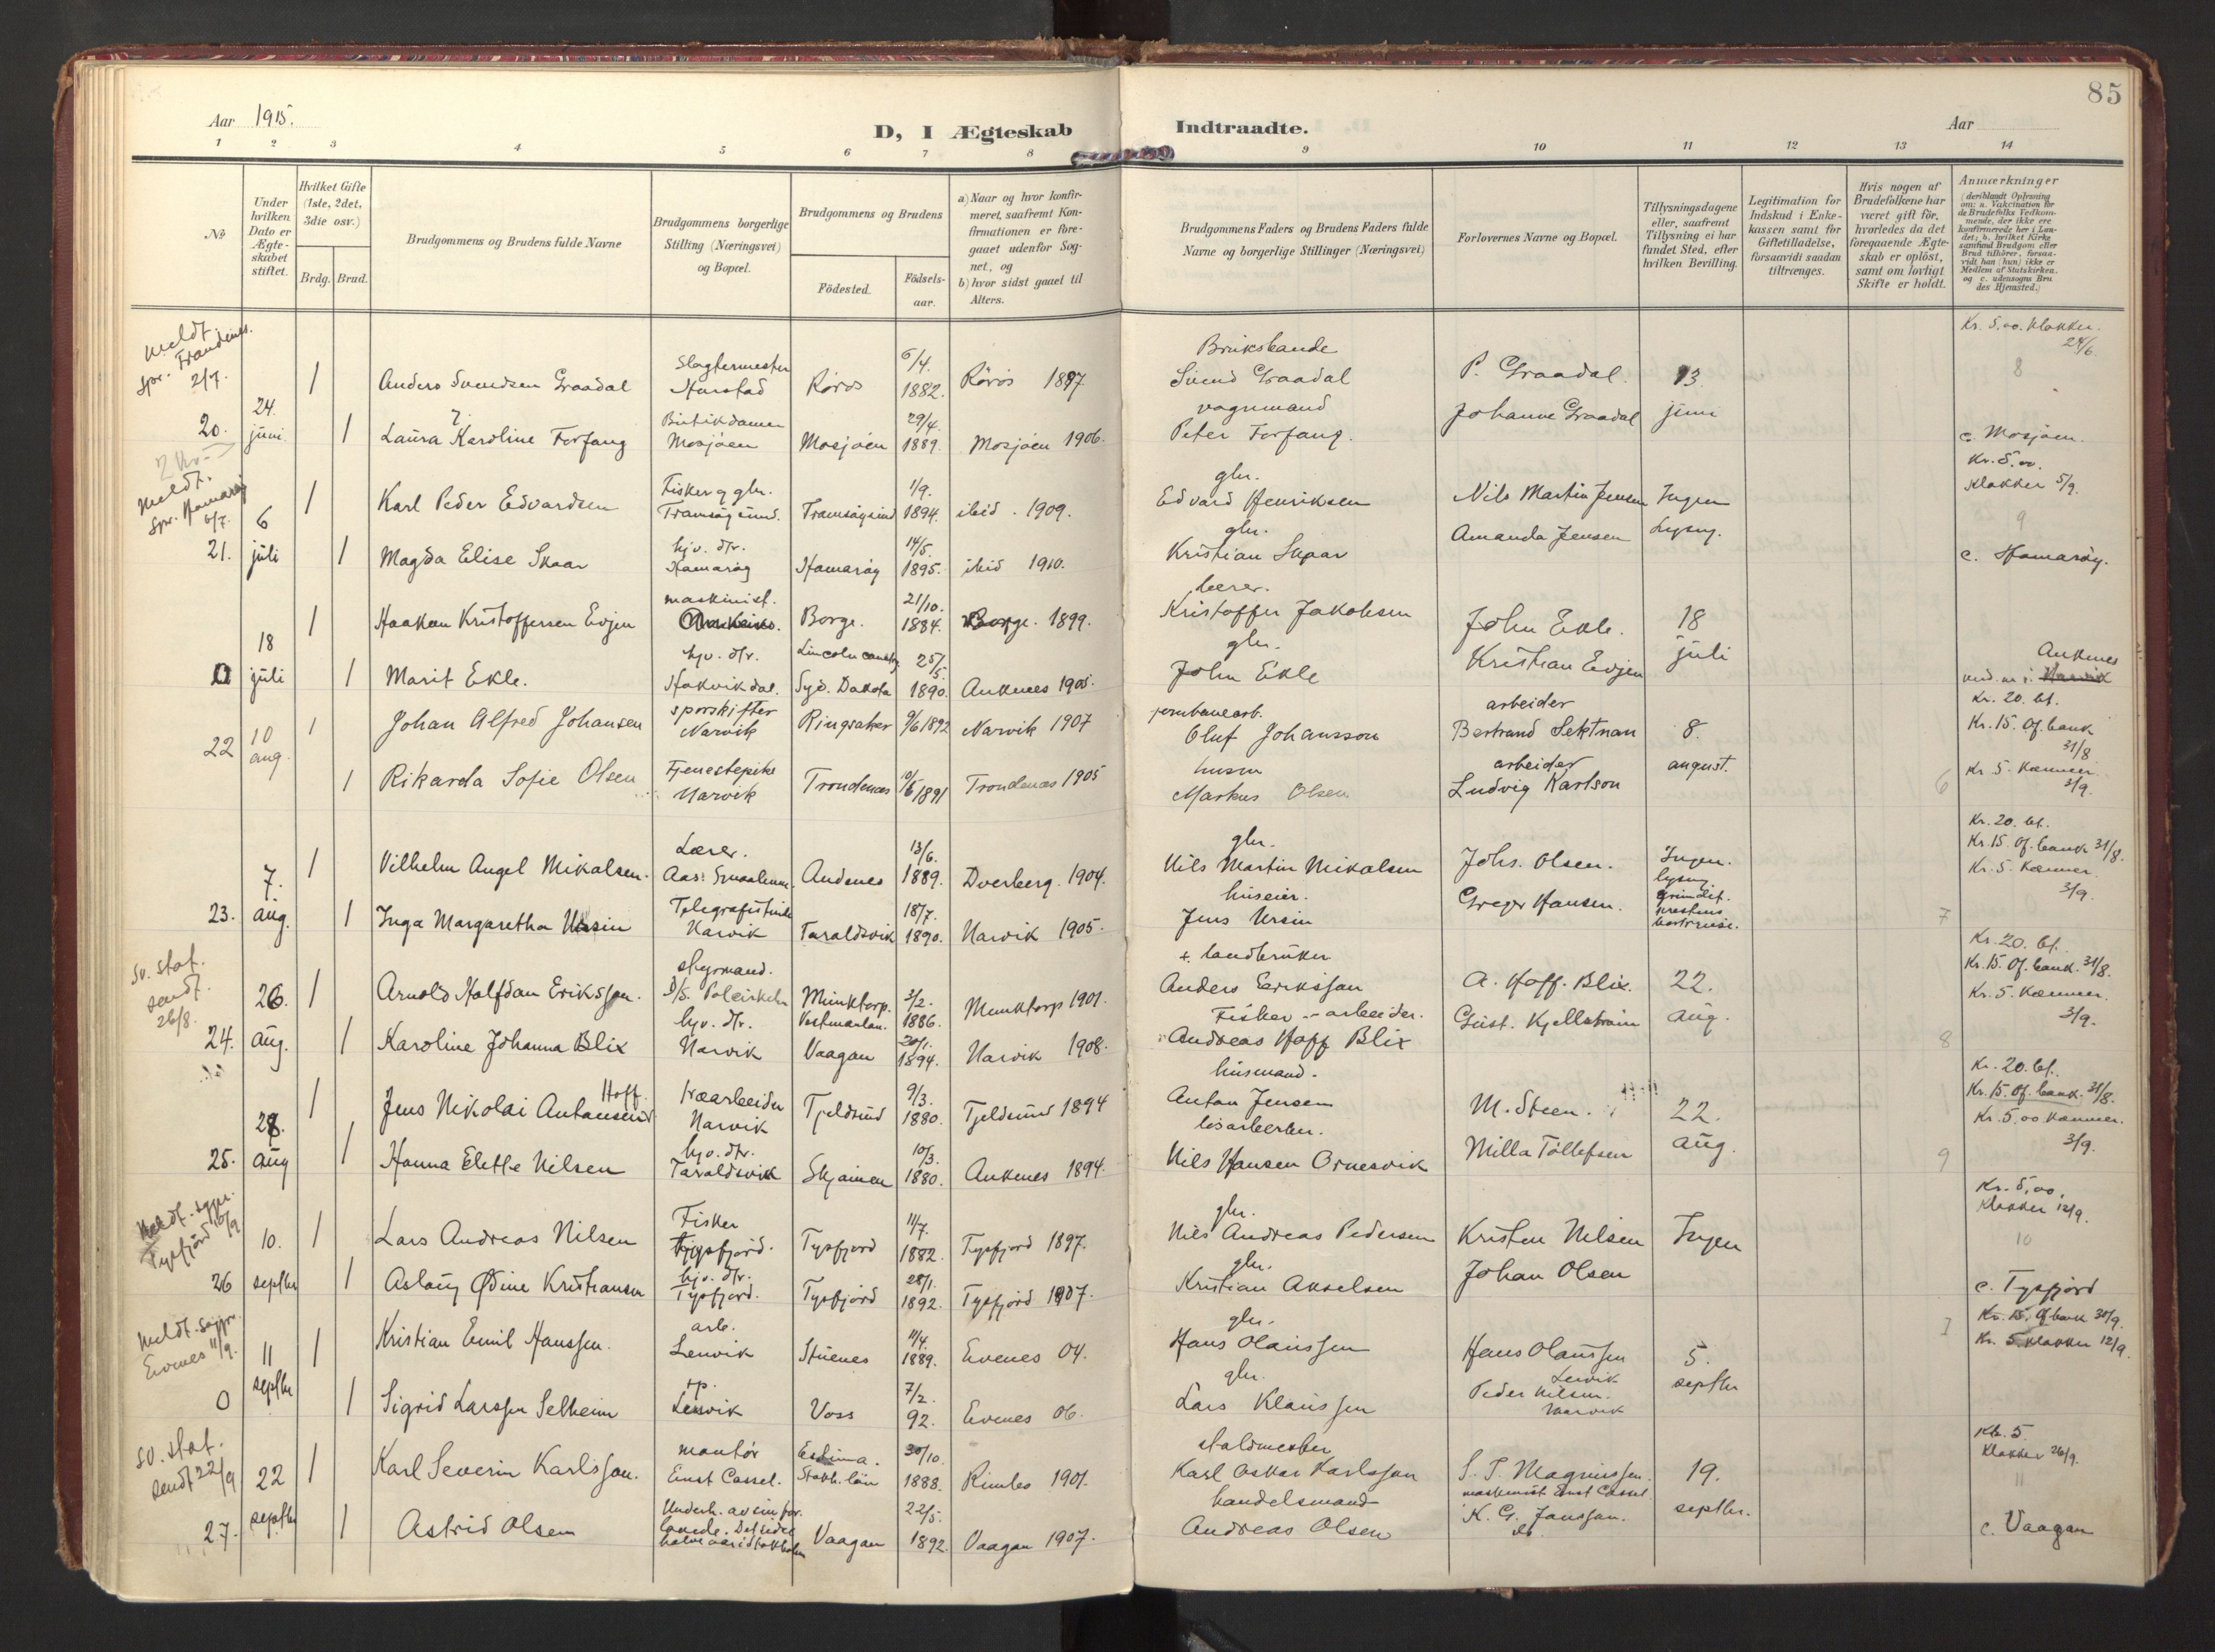 85
Aar 1915.
D, I Ægteskab Indtraadte.
Aar
1 2 3 4 5 6 7 8 9 10 11 12 13 14
No
Under hvilken Dato er Ægte-skabet stiftet.
Hvilket Gifte (1ste, 2det, 3die osv.)
Brdg. Brud.
Brudgommens og Brudens fulde Navne
Brudgommens borgerlige Stilling (Næringsvei) og Bopæl.
Brudgommens og Brudens
Födested.
Födsels-aar.
a) Naar og hvor konfir-meret, saafremt Kon-firmationen er fore-gaaet udenfor Sog-net, og
b) hvor sidst gaaet til Alters.
Brudgommens Faders og Brudens Faders fulde Navne og borgerlige Stillinger (Næringsvei)
Forlovernes Navne og Bopæl.
Tillysningsdagene eller, saafremt Tillysning ei har fundet Sted, efter hvilken Bevilling.
Legitimation for Indskud i Enke-kassen samt for Giftetilladelse, forsaavidt saadan tiltrænges.
Hvis nogen af Brudefolkene har været gift för, hvorledes da det foregaaende Ægte-skab er oplöst, samt om lovligt Skifte er holdt.
Anmærkninger
(deriblandt Oplysning om: a. Vakcination for de Brudefolks Vedkom-mende, der ikke ere konfirmerede her i Lan-det; b. hvilket Kirke-samfund Brudgom eller Brud tilhörer, forsaa-vidt han (hun) ikke er Medlem af Statskirken, og c. udensogns Bru-des Hjemsted.)
meldt spr. Trondenes 2/7.
Kr. 5.00. Klokker. 24/6.
1 Anders Svendsen Graadal Slagtermester Harstad Röros 6/4. 1882. Röros 1897 Bruksbande Svend Graadal P. Graadal. 13. 8
20. 24. juni 1 Laura Karoline Forfang Butikdame Mosjöen Mosjöen 29/4. 1889. Mosjöen 1906. vognmand Peter Forfang. Johanne Graadal juni c. Mosjöen.
2 Kr.
meldt. spr. Hamaröy 6/7.
Kr. 5.00. Klokker 5/9.
1 Karl Peder Edvardsen Fisker og gbr. Tramsöysund. Tramsöysund 1/9. 1894. ibid. 1909. gbr. Edvard Henriksen Nils Martin Jensen Ingen 9
21. 6 juli 1 Magda Elise Skaar hjv. dtr. Hamaröy Hamaröy 14/5. 1895. ibid 1910. gbr. Kristian Skaar Amanda Jensen Lysng. c. Hamaröy.
1 Haakon Kristoffersen Evjen maskinist. Borge. 21/10. 1884. Borge. 1899. lærer. Kristoffer Jakobsen John Ekle. 18
0 18 juli 1 Marit Ekle. hjv. dtr. Hakvikdal. Lincoln county Syd. Dakota 25/5. 1890. Ankenes 1905. gbr. John Ekle Kristian Evjen juli Ankenes
1 Johan Alfred Johansen sporskifter Narvik Ringsaker 9/6 1892 Narvik 1907 jernbanearb. Oluf Johansson arbeider Bertrand Sektnan 8. Kr. 20. bt. Kr. 15. Of. bank 31/8
22 10 aug. 1 Rikarda Sofie Olsen Tjenestepike Narvik Trondenæs 10/5 1891 Trondenæs 1905 husm Markus Olsen arbeider Ludvig Karlson august. 6 Kr 5. Kæmner. 3/9.
1 Vilhelm Angel Mikalsen. Lærer. Andenes 13/6. 1889. Dverberg. 1904. gbr. Nils Martin Mikalsen Johs. Olsen. Ingen. lysng Kr. 20. bt. Kr. 15. Of. bank 31/8. Kr. 5. Kæmner. 3/9.
23. 7. aug. 1 Inga Margaretha Ursin Narvik Taraldsvik 18/7. 1890. Narvik 1905. huseier. Jens Ursin Greger Hansen. grundet. 7
Sv. stat. sendt. 26/8.
1 Arnold Halfdan Eriksson. styrmand. D/S. Munktorp. Vestmanlan. 3/2. 1886. Munktorp 1901. + landbruker Anders Eriksson A. Hoff. Blix. 22. Kr. 20. bt. Kr. 15. Of. bank. 31/8. Kr. 5. Kæmner. 3/9.
24. 26. aug. 1 Karoline Johanna Blix hjv. dtr. Narvik Vaagan 20/1. 1894. Narvik 1908. Fisker - arbeider. Andreas Hoff Blix Gust. Kjellström aug. 8
1 Jens Nikolai Antonsen Hoff. Narvik Tjeldsund 9/3. 1880. Tjeldsund 1894 husmand. Anton Jensen M. Steen. 22. Kr. 20. bt. Kr. 15. Of. bank. 31/8. Kr. 5.00 Kæmner. 3/9.
25. 28. aug 1 Hanna Elette Nilsen hjv. dtr. Taraldsvik Skjomen 10/3. 1880. Ankenes 1894. Nils Hansen Ornesvik Milla Tollefsen aug. 9
Meldt. sogpr. Tysfjord 10/9
1 Lars Andreas Nilsen Fisker Tysfjord. Tysfjord 11/7. 1882. Tysfjord 1897. gbr. Nils Andreas Pedersen Kristen Nilsen Ingen Kr. 5,00, Klokker 12/9. 10
26 10. septbr 1 Aslaug Ødine Kristiansen hjv. dtr. Tysfjord. Tysfjord 28/1. 1892. Tysfjord 1907. gbr. Kristian Akselsen Johan Olsen c. Tysfjord
Meldt. sogpr. Evenes 11/9.
1 Kristian Emil Hanssen. arb. Lenvik Stuenes 11/4. 1889. Evenes 04. gbr. Hans Olaussen Hans Olaussen Lenvik 5. 1 Kr. 15. Of bank 30/9. Kr. 5 Klokker 12/9.
0 11 septbr 1 Sigrid Larssen Selheim Lenvik Voss 7/2. 92. Evenes 06. gbr. Lars Klaussen Peder Nilsen. Narvik septbr
Sv. stat. sendt 22/9
1 Karl Severin Karlsson. montör Ernst Cassel. Estuna. Stokh. län 30/10. 1888. Rimbo 1901. staldmester Karl Oskar Karlsson S. P. Magnussen. maskinist Ernst Cassel 19. Kr. 5 Klokker 26/9. 11
27. 22 septbr 1 Astrid Olsen Underh. av sin for. Det sidste halve aar i Stokholm Vaagan 22/5. 1892. Vaagan 1907. handelsmand Andreas Olsen K. G. Jansson. septbr. c. Vaagan